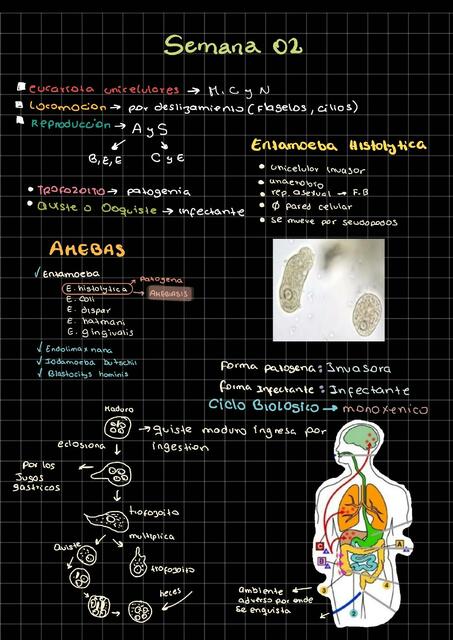 Semana 02
eucariota unicelulares → M, C y N
Locomocion → por deslizamiento (flagelos, cilios)
Reproducción → A y S
B, E, E
C y E
Entamoeba Histolytica
• unicelular invasor
• anaerobio
• rep. asexual → F.B
• Ø pared celular
• se mueve por seudopodos
• Trofozoito → patogenia
• Quiste o Ooquiste → infectante
AMEBAS
✓ Entamoeba
E. histolytica → Patogena
→ AMEBIASIS
E. coli
E. dispar
E. hatmani
E. gingivalis
✓ Endolimax nana
✓ Iodamoeba butschii
✓ Blastocitys hominis
Forma patogena: Invasora
Forma Infectante: Infectante
Ciclo Biologico → monoxenico
Maduro
→ Quiste maduro ingresa por
ingestion
eclosiona
Por los
Jugos
gastricos
trofozoito
multiplica
Quiste
trofozoito
heces
C
A
B
3
4
2
ambiente
adverso por onde
se enquista